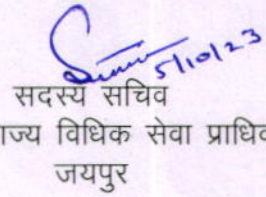 5/10/23
सदस्य सचिव
ाज्य विधिक सेवा प्राधि
जयपुर